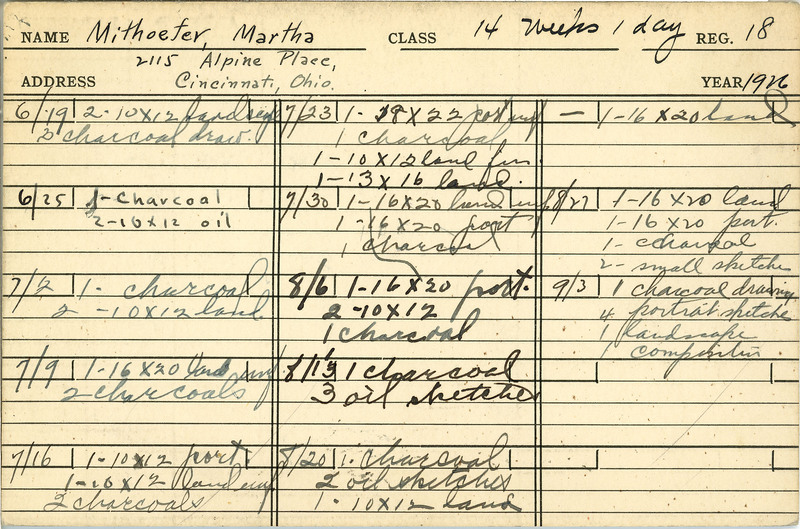 NAME Mithoefer, Martha CLASS 14 Weeks 1 day REG. 18
2115 Alpine Place,
ADDRESS Cincinnati, Ohio. YEAR 1926
6/19 2-10X12 land
2 charcoal draw.
6/25 1-Charcoal
2-10X12 oil
7/2 1- charcoal
2 -10X12 land
7/9 1-16X20 land unf
2 charcoals
7/16 1-10X12 port.
1-10X12 land unf
2 charcoals
7/23 1- X22 port unf
1 charcoal
1-10X12 land
1-13X16 land.
7/30 1-16X20 land unf
1-16X20 port
1 charcoal
8/6 1-16X20 port.
2-10X12
1 charcoal
8/13 1 charcoal
3 oil sketches
8/20 1. charcoal
2 oil sketches
1-10X12 land
— 1-16X20 land
8/27 1-16X20 land
1-16X20 port.
1- charcoal
2- small sketches
9/3 1 charcoal drawing
4 portrait sketches
1 landscape
1 composition